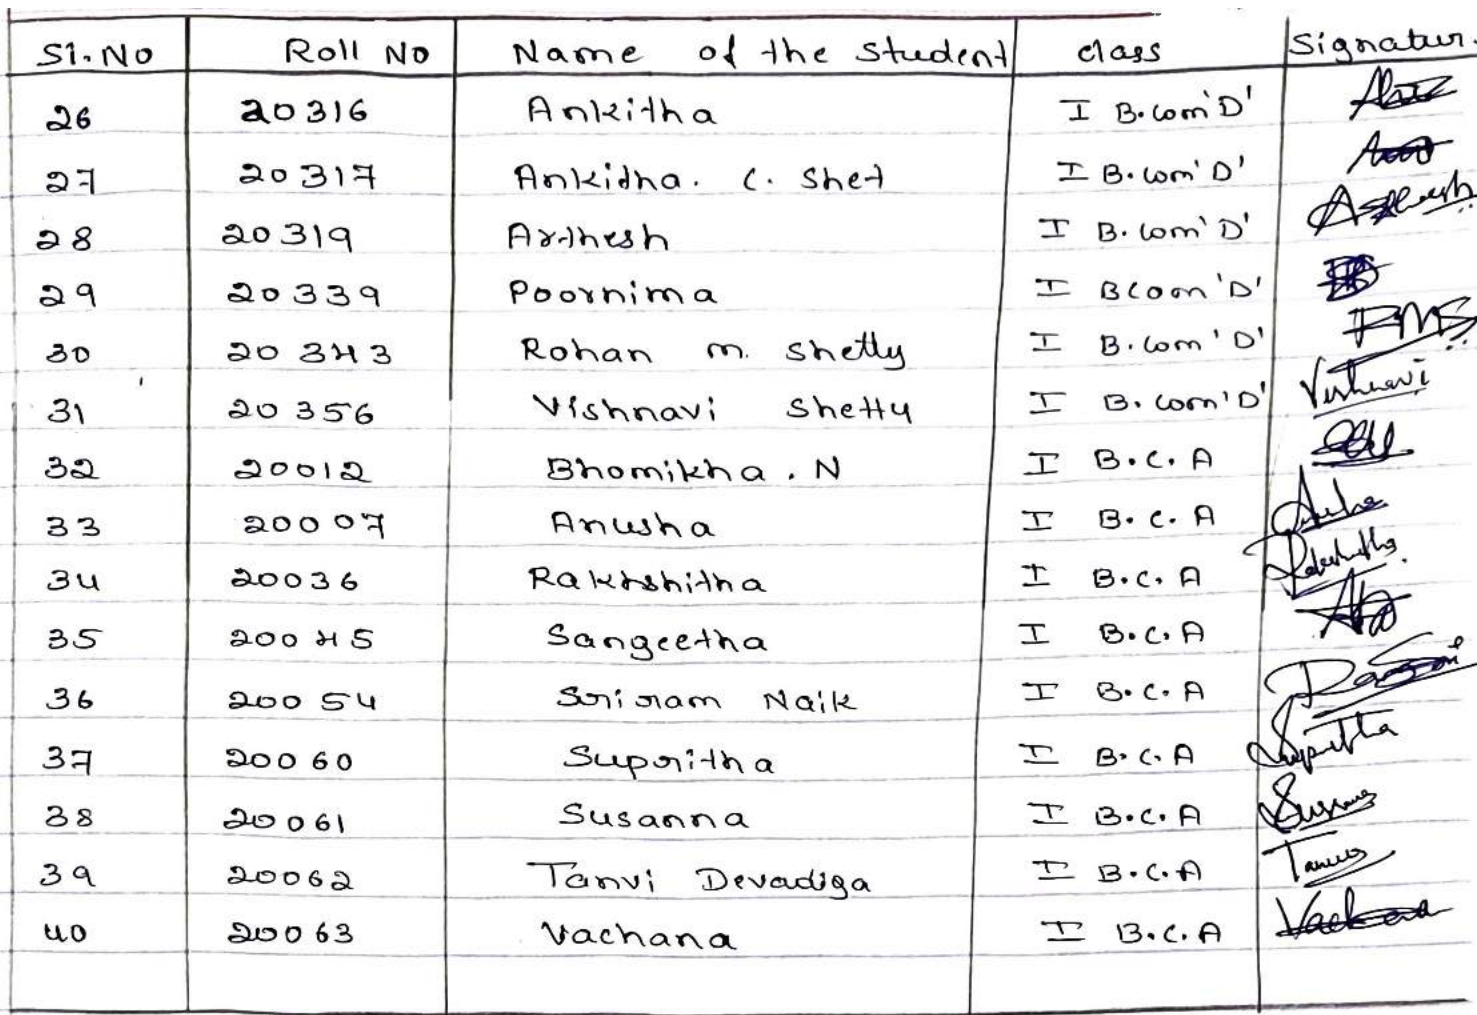 Sl. No Roll No Name of the Student class Signatur.
26 20316 Ankitha I B.com'D'
27 20317 Ankitha. C. Shet I B.com'D'
28 20319 Arthesh I B.com'D'
29 20339 Poornima I Bcom'D'
30 20343 Rohan m. Shetty I B.com'D' RMS
31 20356 Vishnavi Shetty I B.com'D' Vishnavi
32 20012 Bhomikha. N I B.C.A
33 20007 Anusha I B.C.A
34 20036 Rakshitha I B.C.A Rakshitha
35 20045 Sangeetha I B.C.A
36 20054 Sriram Naik I B.C.A
37 20060 Supritha I B.C.A Supritha
38 20061 Susanna I B.C.A
39 20062 Tanvi Devadiga I B.C.A
40 20063 Vachana I B.C.A Vachana